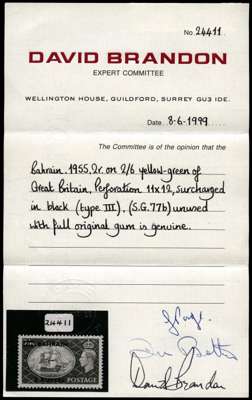 No. 24411
DAVID BRANDON
EXPERT COMMITTEE
WELLINGTON HOUSE, GUILDFORD, SURREY GU3 IDE.
Date 8-6-1999
The Committee is of the opinion that the
Bahrain. 1955, 2r. on 2/6 yellow-green of
Great Britain, Perforation 11x12, surcharged
in black (type III), (S.G.77b) unused
with full original gum is genuine.
24411
David Brandon